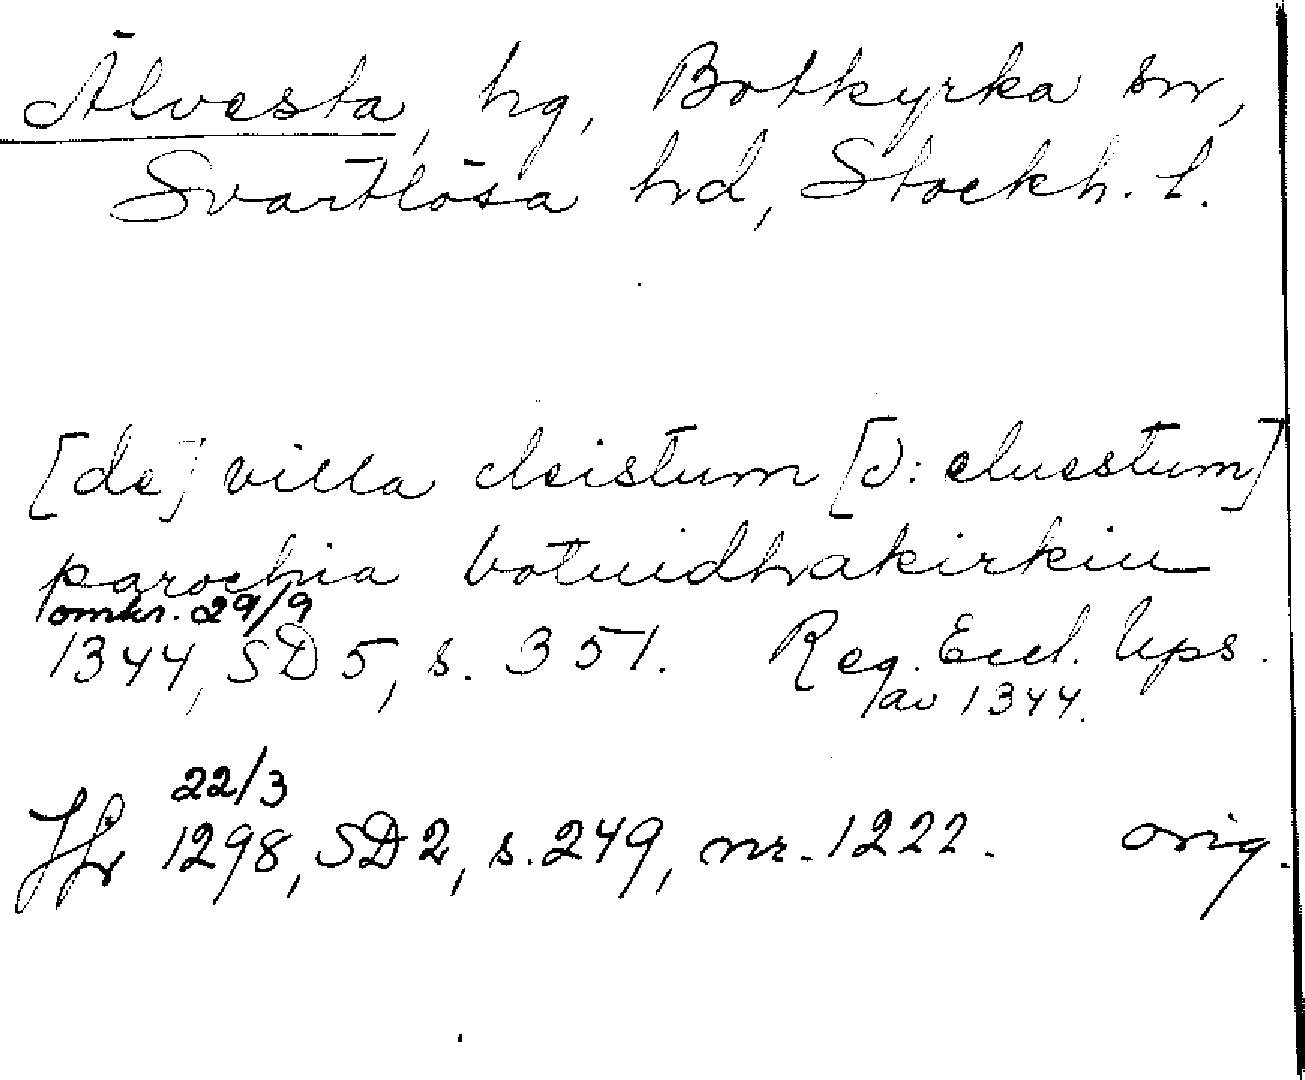 Älvesta, hg, Botkyrka sn,
Svartlösa hd, Stockh. l.
[de] villa cleistum [ɔ: eluestum]
parochia botuidhakirkiu
omkr. 29/9
1344, SD 5, s. 351. Reg. Eccl. Ups.
av 1344.
22/3
Jfr 1298, SD 2, s. 249, nr. 1222. orig.